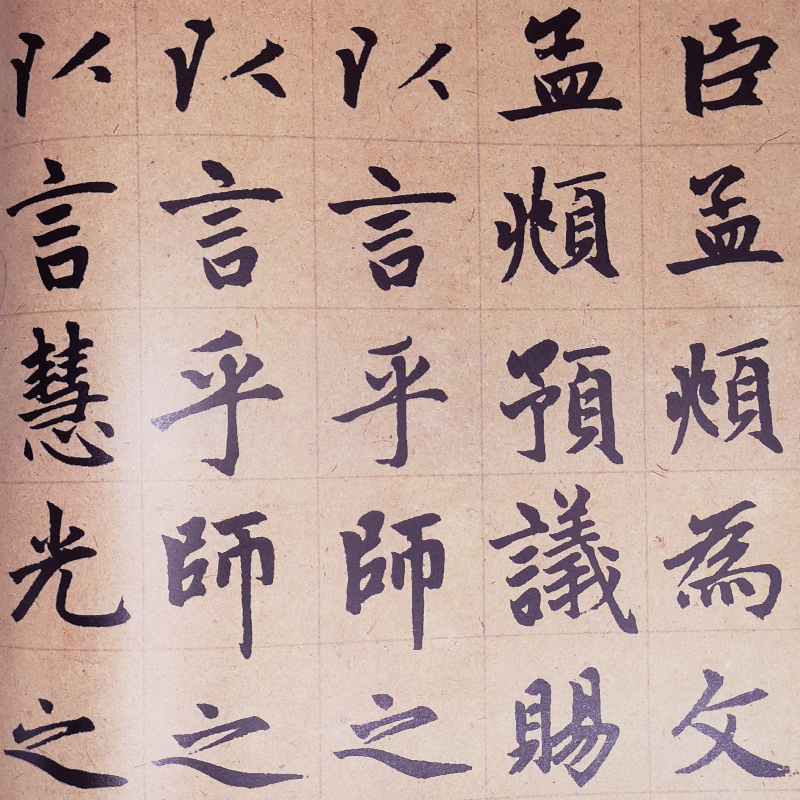 臣孟頫為文
孟頫預議賜
以言乎師之
以言乎師之
以言慧光之